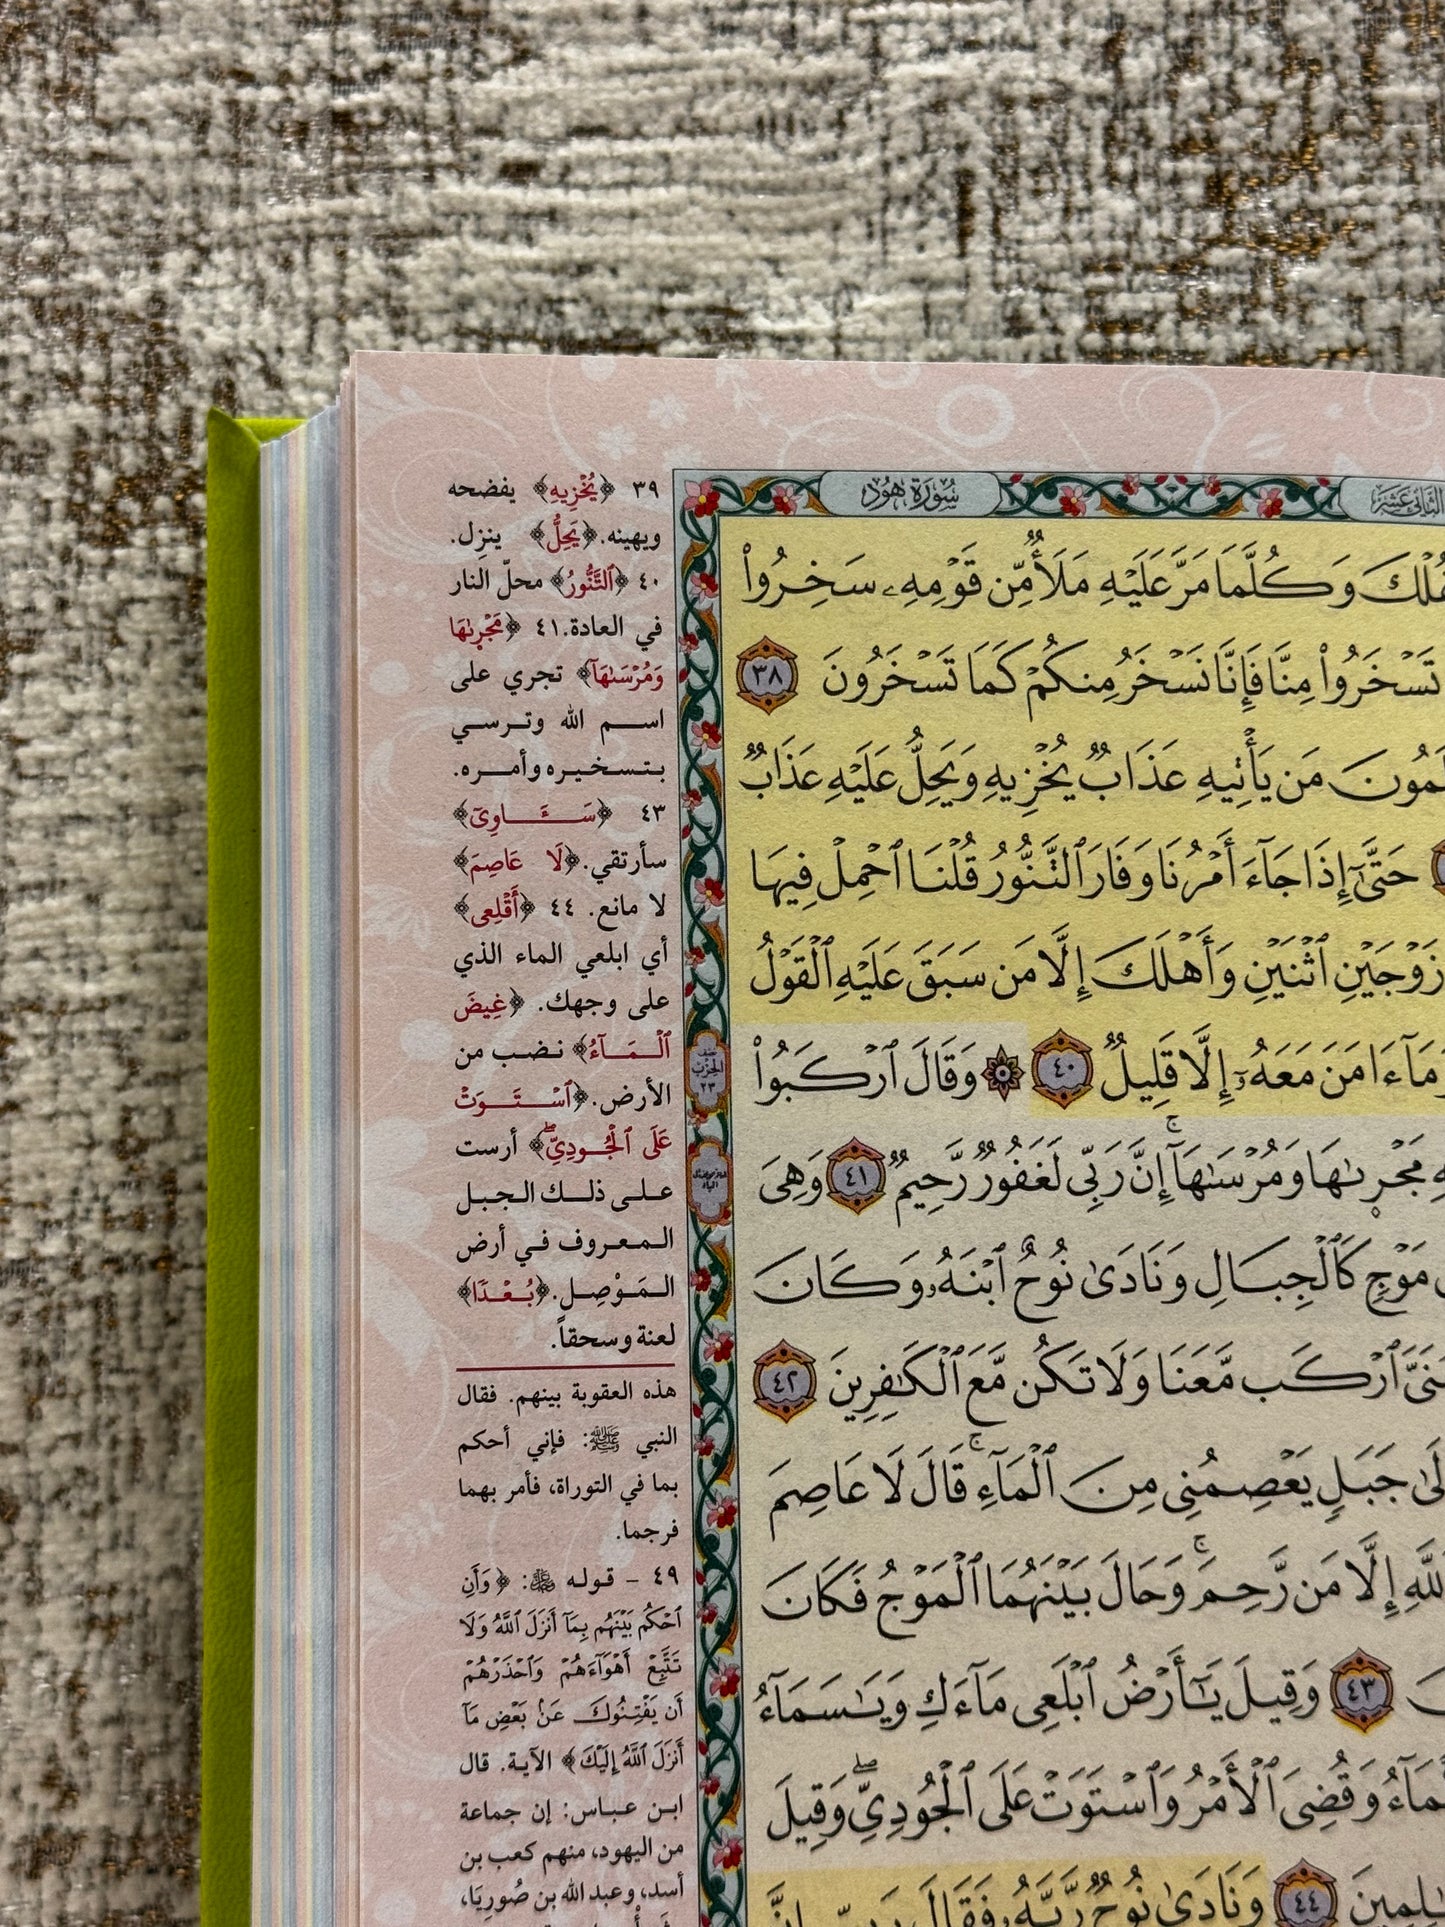 سُورَةُ هُودٍ
وَكُلَّمَا مَرَّ عَلَيْهِ مَلَأٌ مِّن قَوْمِهِۦ سَخِرُواْ
تَسْخَرُواْ مِنَّا فَإِنَّا نَسْخَرُ مِنكُمْ كَمَا تَسْخَرُونَ ٣٨
مَن يَأْتِيهِ عَذَابٌ يُخْزِيهِ وَيَحِلُّ عَلَيْهِ عَذَابٌ
حَتَّىٰٓ إِذَا جَآءَ أَمْرُنَا وَفَارَ ٱلتَّنُّورُ قُلْنَا ٱحْمِلْ فِيهَا
زَوْجَيْنِ ٱثْنَيْنِ وَأَهْلَكَ إِلَّا مَن سَبَقَ عَلَيْهِ ٱلْقَوْلُ
ءَامَنَ مَعَهُۥٓ إِلَّا قَلِيلٌ ٤٠ ۞ وَقَالَ ٱرْكَبُواْ
مَجْر۪ىٰهَا وَمُرْسَىٰهَآۚ إِنَّ رَبِّى لَغَفُورٌ رَّحِيمٌ ٤١ وَهِىَ
مَوْجٍ كَٱلْجِبَالِ وَنَادَىٰ نُوحٌ ٱبْنَهُۥ وَكَانَ
ٱرْكَب مَّعَنَا وَلَا تَكُن مَّعَ ٱلْكَٰفِرِينَ ٤٢
جَبَلٍ يَعْصِمُنِى مِنَ ٱلْمَآءِۚ قَالَ لَا عَاصِمَ
إِلَّا مَن رَّحِمَۚ وَحَالَ بَيْنَهُمَا ٱلْمَوْجُ فَكَانَ
٤٣ وَقِيلَ يَٰٓأَرْضُ ٱبْلَعِى مَآءَكِ وَيَٰسَمَآءُ
وَقُضِىَ ٱلْأَمْرُ وَٱسْتَوَتْ عَلَى ٱلْجُودِىِّۖ وَقِيلَ
٤٤ وَنَادَىٰ نُوحٌ رَّبَّهُۥ فَقَالَ
نصف
الحزب
٢٣
٣٩ ﴿يُخْزِيهِ﴾ يفضحه
ويهينه. ﴿يَحِلُّ﴾ ينزل.
٤٠ ﴿ٱلتَّنُّورُ﴾ محلّ النار
في العادة. ٤١ ﴿مَجْر۪ىٰهَا
وَمُرْسَىٰهَآ﴾ تجري على
اسم الله وترسي
بتسخيره وأمره.
٤٣ ﴿سَـَٔاوِىٓ﴾
سأرتقي. ﴿لَا عَاصِمَ﴾
لا مانع. ٤٤ ﴿أَقْلِعِى﴾
أي ابلعي الماء الذي
على وجهك. ﴿غِيضَ
ٱلْمَآءُ﴾ نضب من
الأرض. ﴿ٱسْتَوَتْ
عَلَى ٱلْجُودِىِّۖ﴾ أرست
على ذلك الجبل
المعروف في أرض
المَوْصِل. ﴿بُعْدًا﴾
لعنة وسحقاً.
هذه العقوبة بينهم. فقال
النبي ﷺ: فإني أحكم
بما في التوراة، فأمر بهما
فرجما.
٤٩ - قوله : ﴿وَأَنِ
ٱحْكُم بَيْنَهُم بِمَآ أَنزَلَ ٱللَّهُ وَلَا
تَتَّبِعْ أَهْوَآءَهُمْ وَٱحْذَرْهُمْ
أَن يَفْتِنُوكَ عَنۢ بَعْضِ مَآ
أَنزَلَ ٱللَّهُ إِلَيْكَ﴾ الآية. قال
ابن عباس: إن جماعة
من اليهود، منهم كعب بن
أسد، وعبد الله بن صُورِيَا،